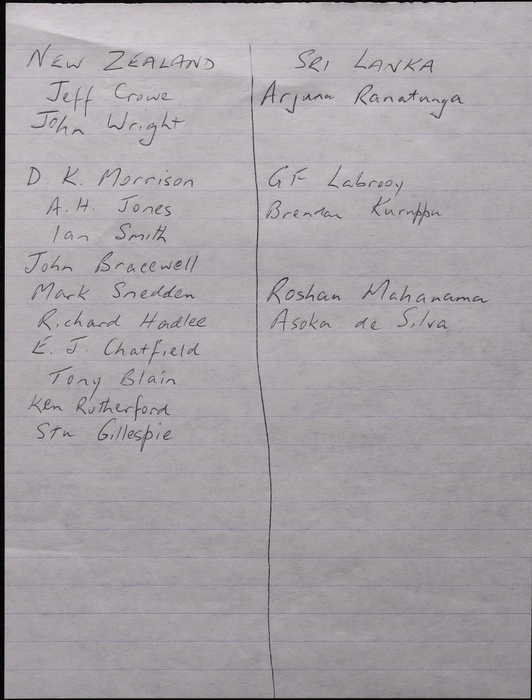 NEW ZEALAND
Jeff Crowe
John Wright
D. K. Morrison
A.H. Jones
Ian Smith
John Bracewell
Mark Snedden
Richard Hadlee
E. J. Chatfield
Tony Blain
Ken Rutherford
Stu Gillespie
SRI LANKA
Arjuna Ranatunga
GF Labrooy
Brendan Kuruppu
Roshan Mahanama
Asoka de Silva